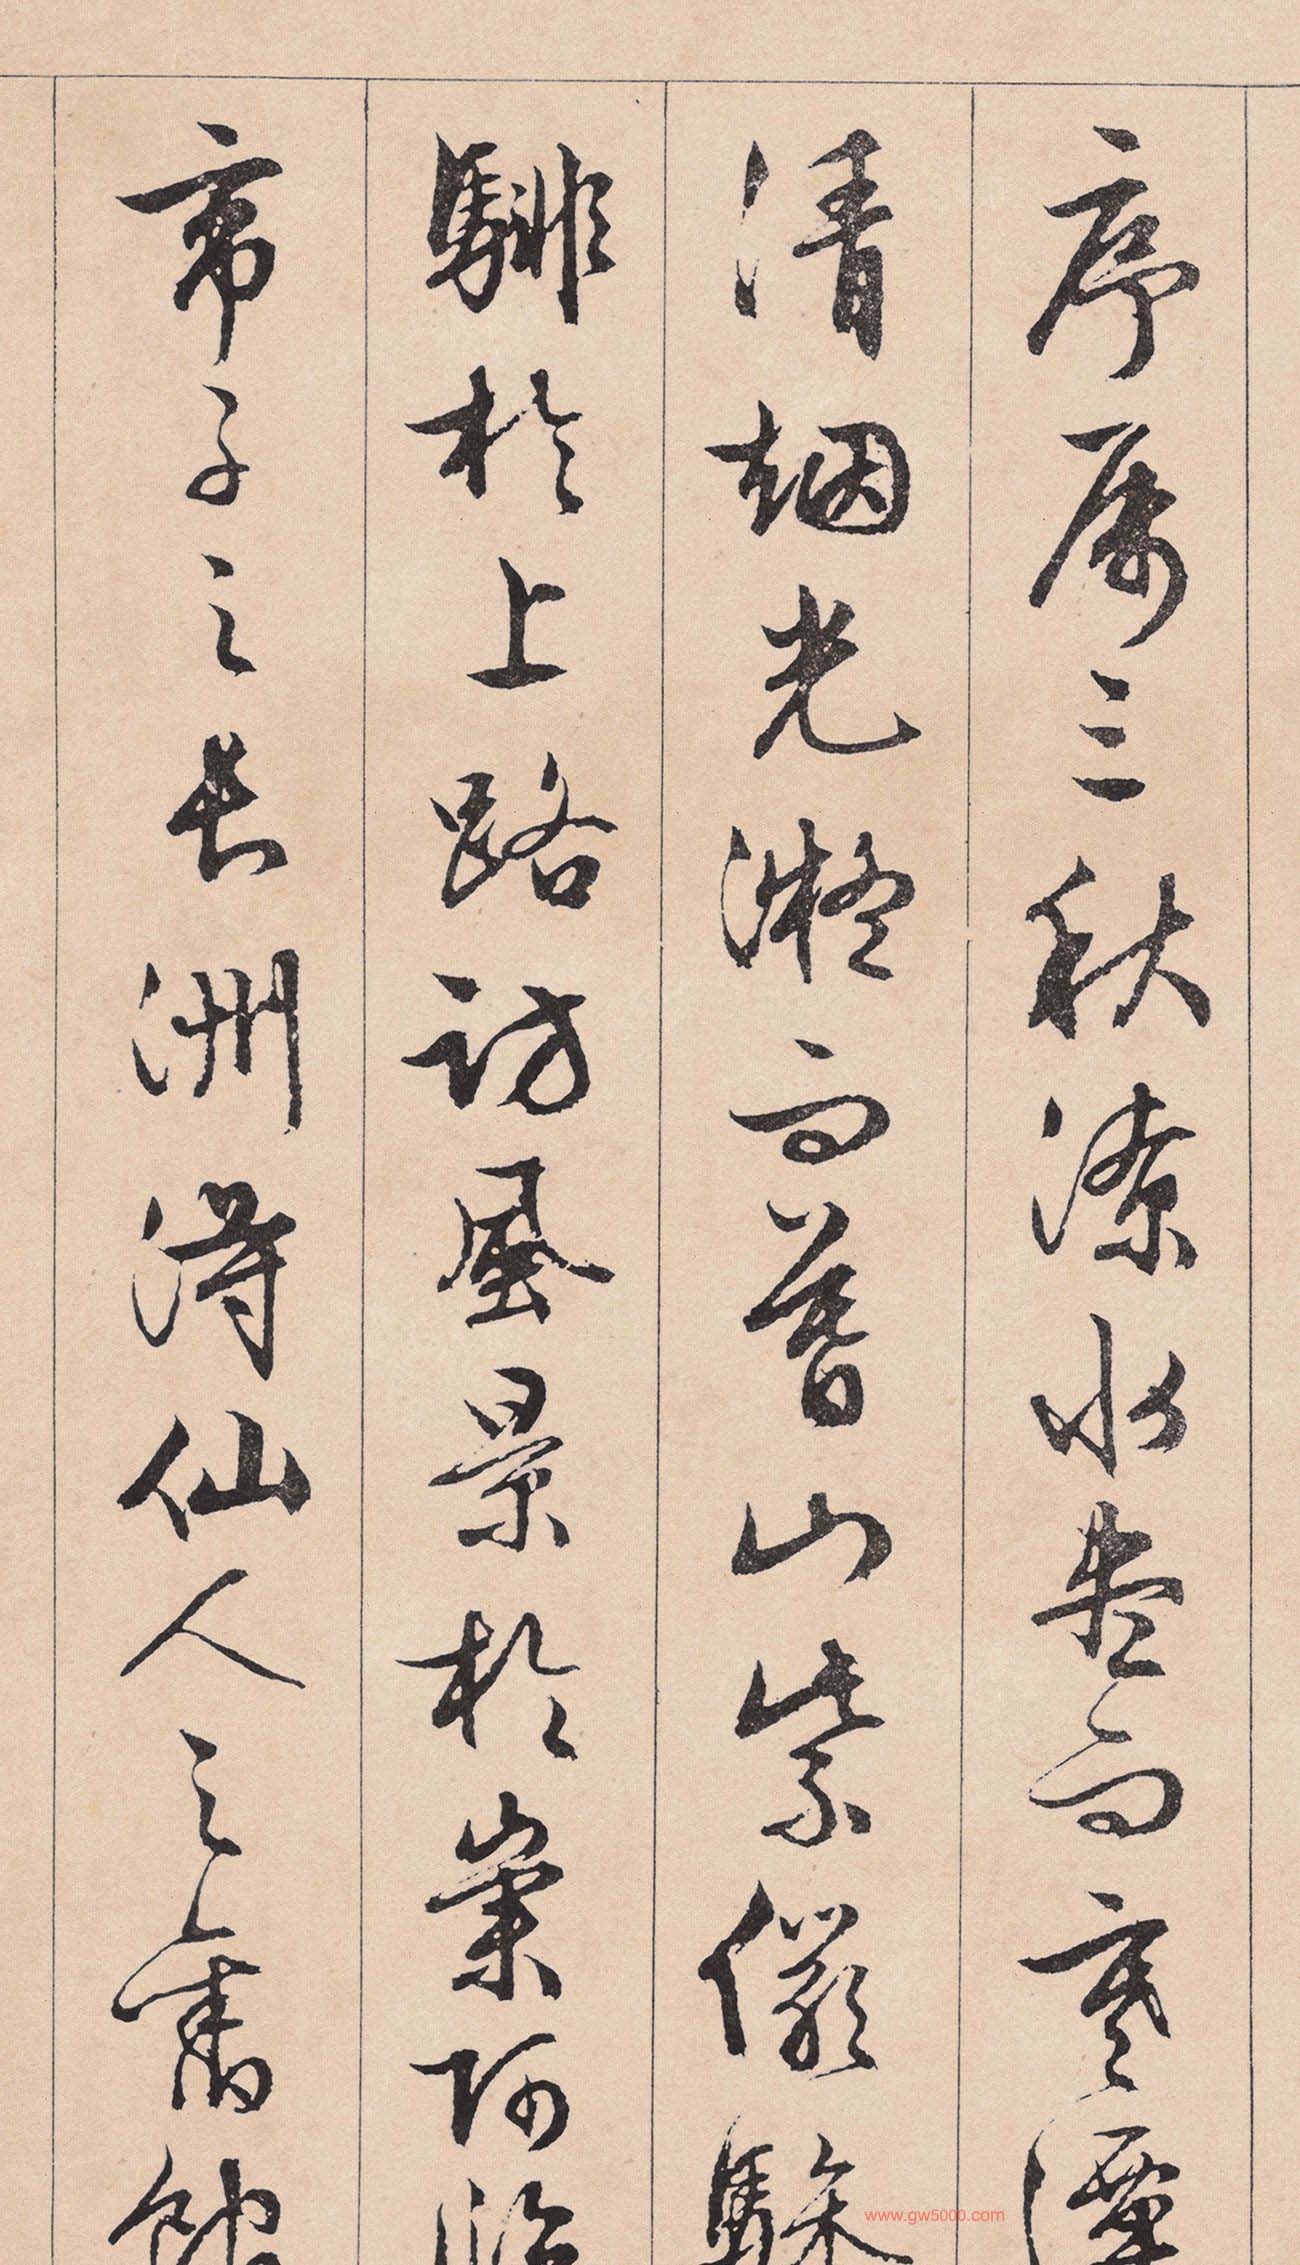 序属三秋潦水尽而寒潭
清烟光凝而暮山紫儼驂
騑於上路訪風景於崇阿臨
帝子之長洲得仙人之舊館
www.gw5000.com